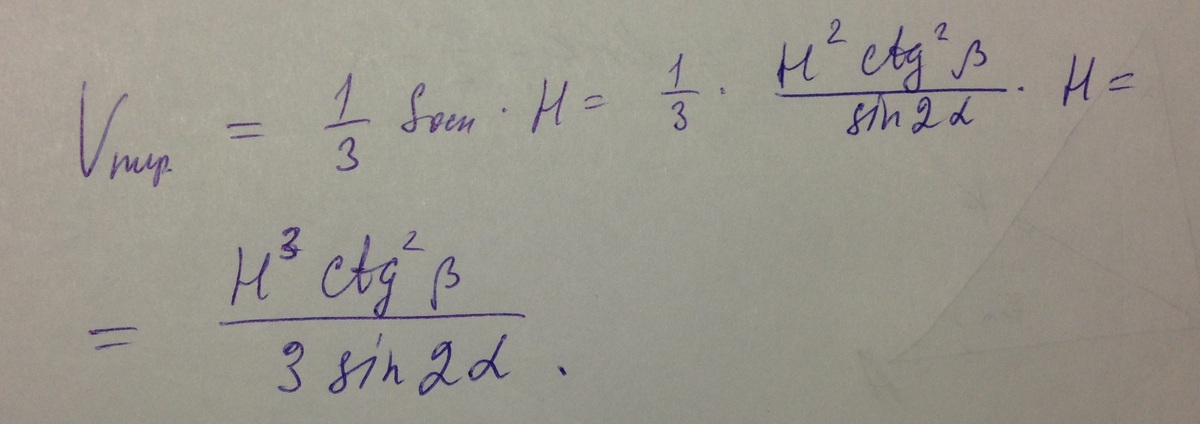 Vпир. = 1/3 Sосн · H = 1/3 · H² ctg²β / sin2α · H =
= H³ ctg²β / 3 sin2α .